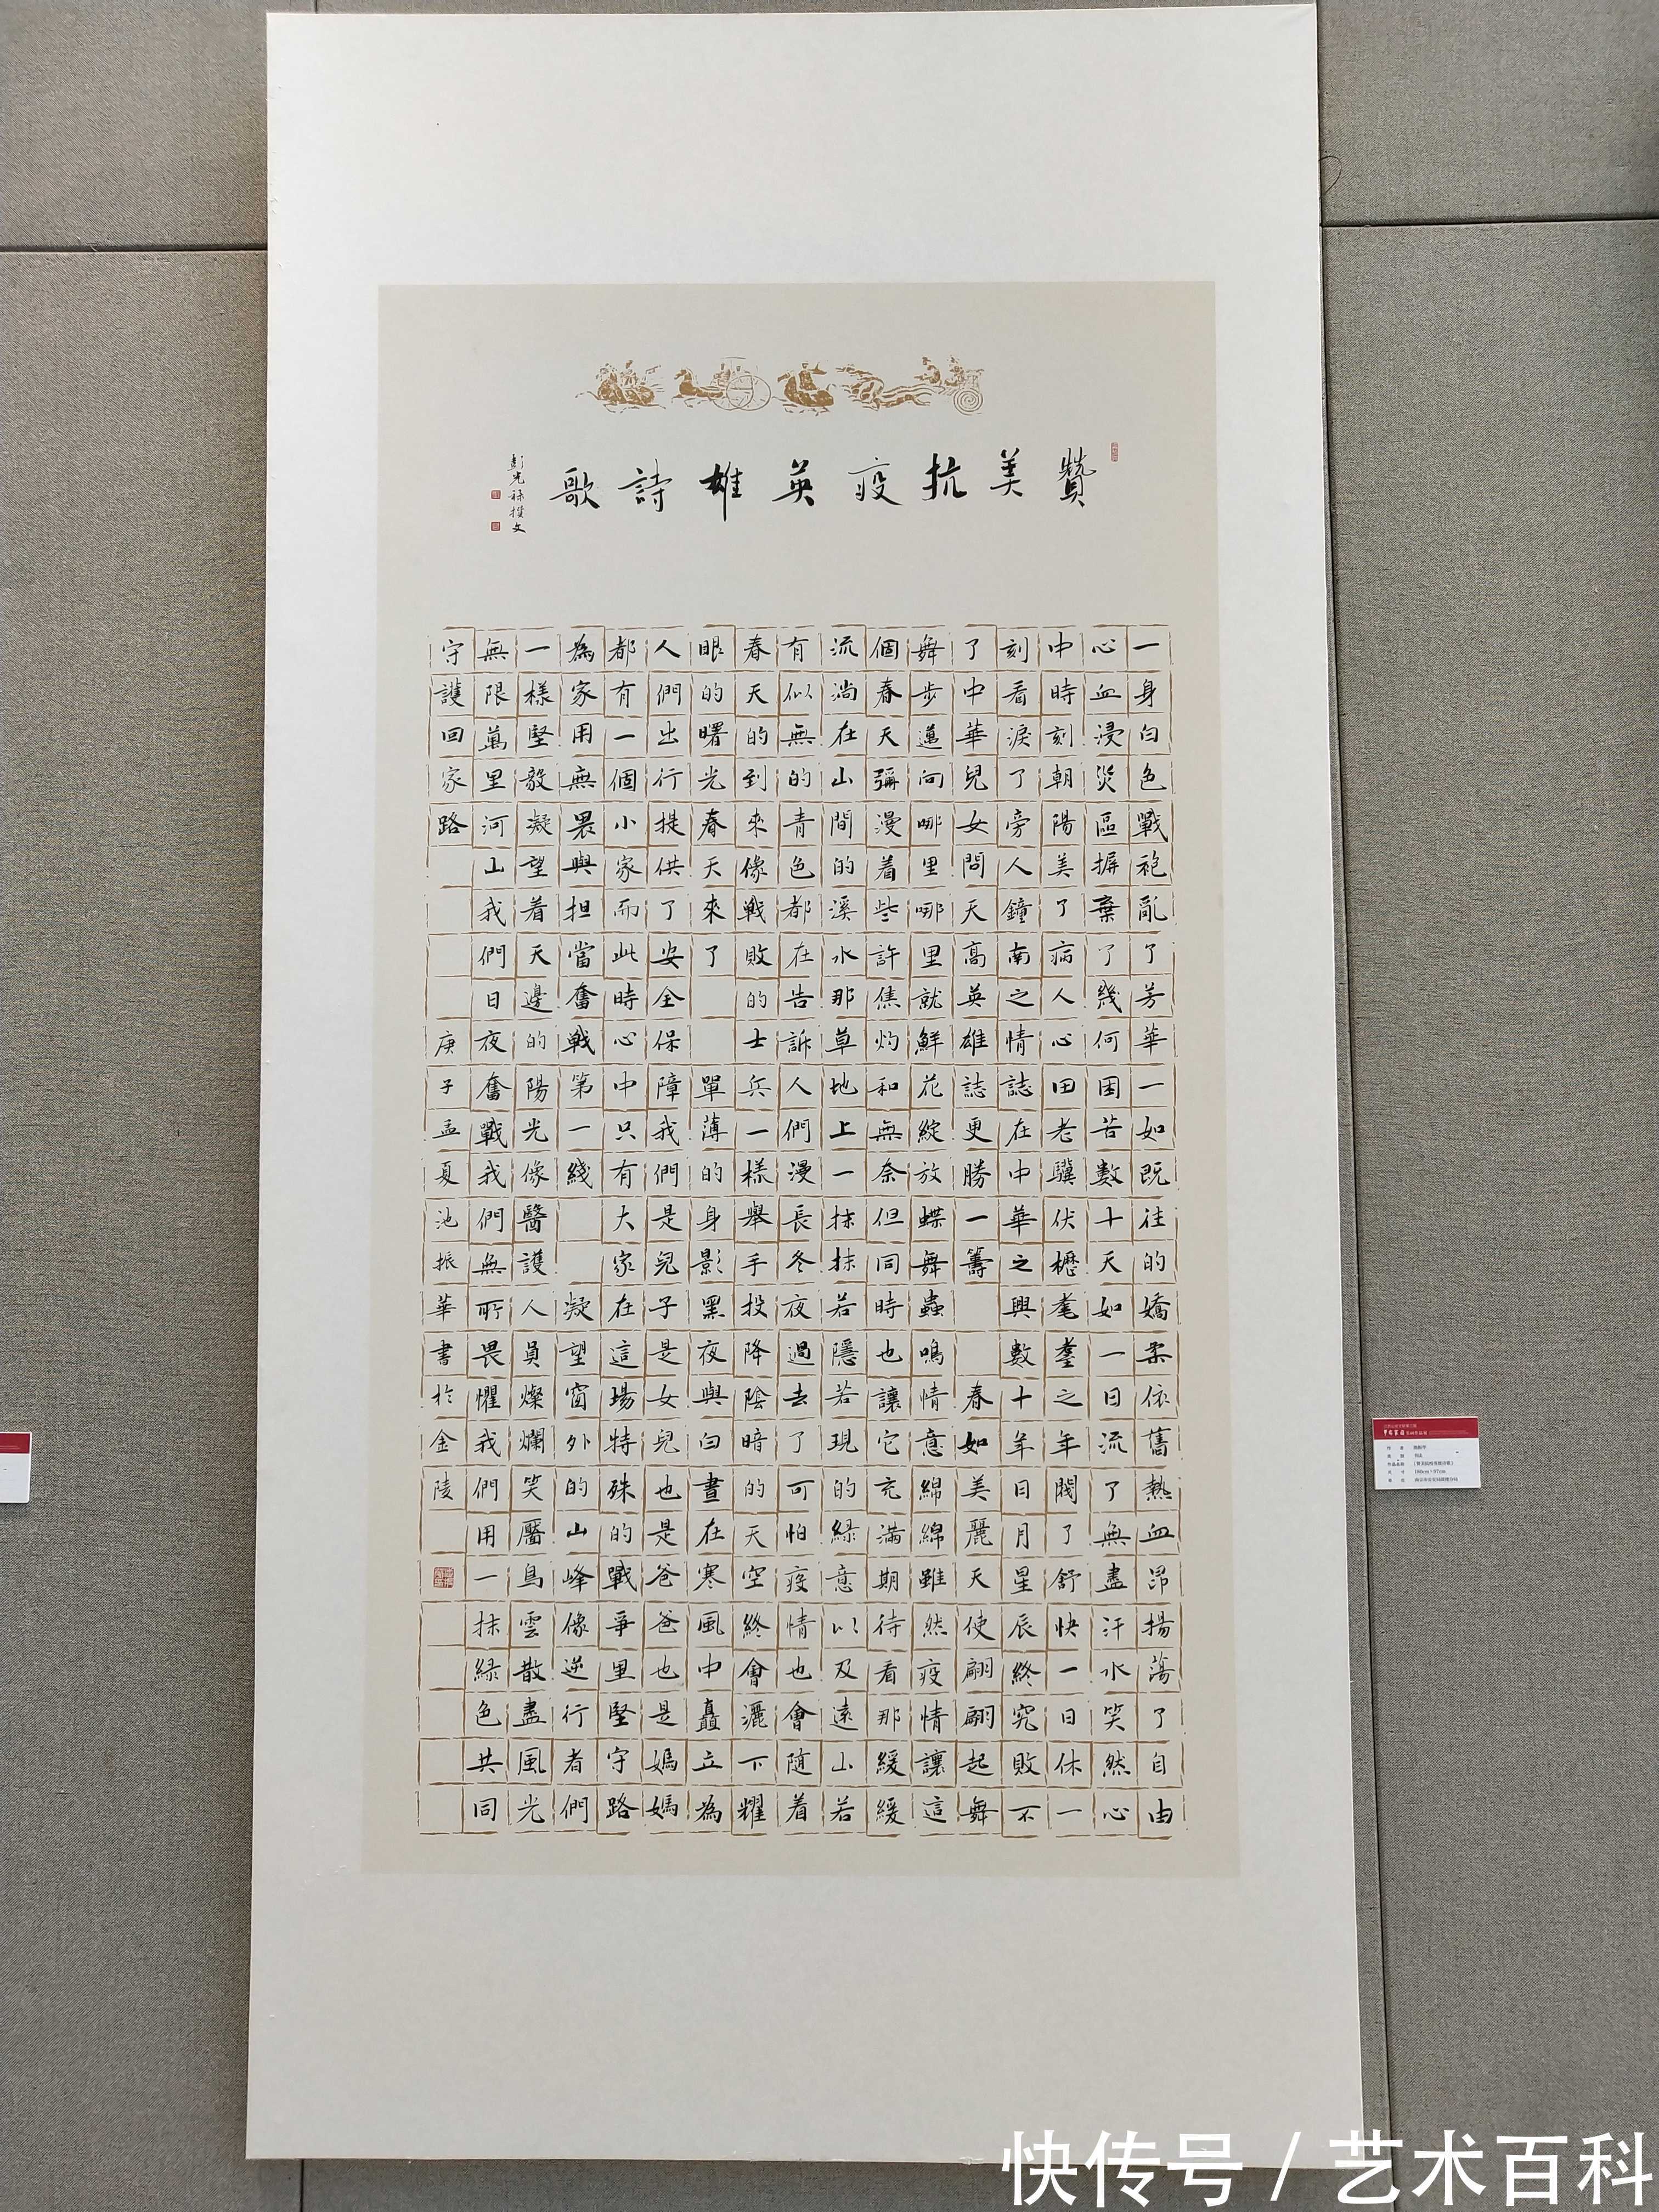 贊美抗疫英雄詩歌
一身白色戰袍亂了芳華一如既往的嬌柔依舊熱血昂揚蕩了自由
心血浸災區摒棄了幾何困苦數十天如一日流了無盡汗水笑然心
中時刻朝陽美了病人心田老驥伏櫪耄耋之年閥了舒快一日休一
刻看淚了旁人鐘南之情誌在中華之興數十年日月星辰終究敗不
了中華兒女問天高英雄誌更勝一籌 春如美麗天使翩翩起舞
舞步邁向哪里哪里就鮮花綻放蝶舞蟲鳴情意綿綿雖然疫情讓這
個春天彌漫着些許焦灼和無奈但同時也讓它充滿期待看那緩緩
流淌在山間的溪水那草地上一抹抹若隱若現的緑意以及遠山若
有似無的青色都在告訴人們漫長冬夜過去了可怕疫情也會隨着
春天的到來像戰敗的士兵一樣舉手投降陰暗的天空終會灑下耀
眼的曙光春天來了 單薄的身影黑夜與白晝在寒風中矗立為
人們出行提供了安全保障我們是兒子是女兒也是爸爸也是媽媽
都有一個小家而此時心中只有大家在這場特殊的戰爭里堅守路
為家用無畏與担當奮戰第一綫 凝望窗外的山峰像逆行者們
一樣堅毅凝望着天邊的陽光像醫護人員燦爛笑靨鳥雲散盡風光
無限萬里河山我們日夜奮戰我們無所畏懼我們用一抹緑色共同
守護回家路 庚子孟夏池振華書於金陵
快传号 / 艺术百科